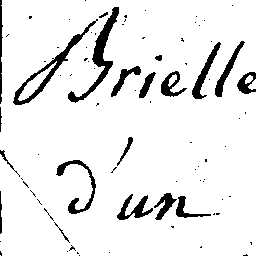 Brielle
d'un